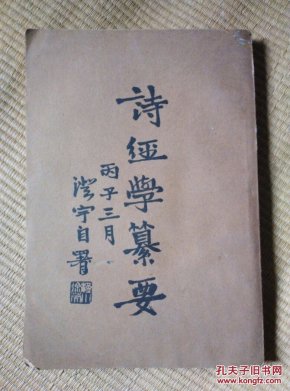 詩經學纂要
丙子三月
澄宇自署
孔夫子旧书网